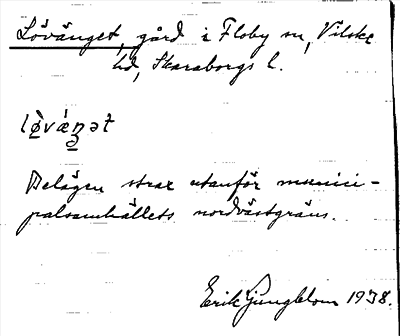 Lövänget, gård i Floby sn, Vilske
hd, Skaraborgs l.
Belägen strax utanför munici-
palsamhällets nordvästgräns.
Erik Ljungblom 1938.